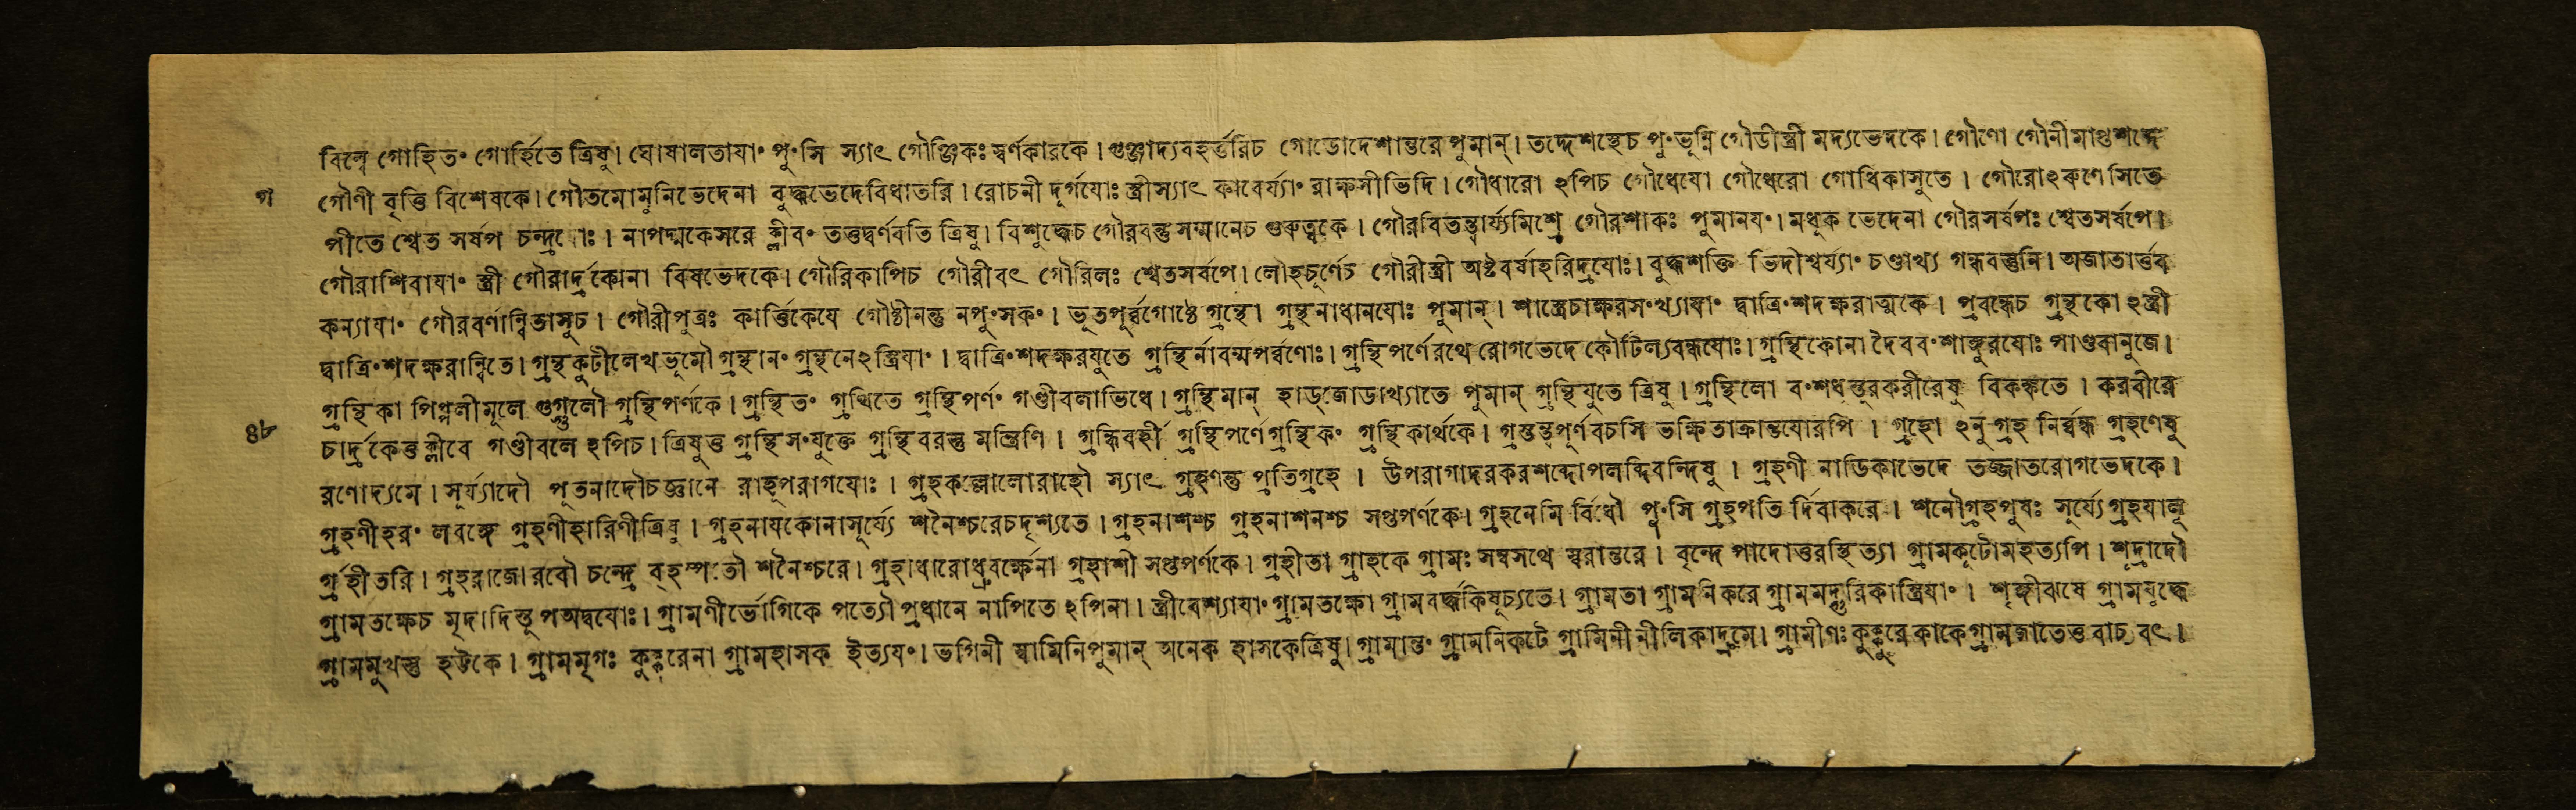 বিল্বে গোহিত॰ গোর্হিতে ত্রিষু। ঘোষালতাযা॰ পু॰সি স্যাৎ গৌঞ্জিকঃ স্বর্ণকারকে। গুঞ্জাদ্যবহর্ত্তরিচ গোডোদেশান্তরে পুমান্। তদ্দেশস্থেচ পু॰ভূম্নি গৌডীস্ত্রী মদ্যভেদকে। গৌণো গৌনীমাপ্তশব্দে
গ
গৌণী বৃত্তি বিশেষকে। গৌতমোমুনিভেদেনা বুদ্ধভেদেবিধাতরি। রোচনী দূর্গযোঃ স্ত্রীস্যাৎ কাবের্য্যা॰ রাক্ষসীভিদি। গৌধারো ঽপিচ গৌধেযো গৌধেরো গোধিকাসুতে। গৌরোঽরুণে সিতে
পীতে শ্বেত সর্ষপ চন্দ্রযোঃ। নাপদ্মকেসরে ক্লীব॰ তত্তদ্বর্ণবতি ত্রিষু। বিশুদ্ধেচ গৌরবন্তু সম্মানেচ গুরুত্বকে। গৌরবিতস্ত্বার্য্যমিশ্রে গৌরশাকঃ পুমানয॰। মধূক ভেদেনা গৌরসর্ষপঃ শ্বেতসর্ষপে।
গৌরাশিবাযা॰ স্ত্রী গৌরার্দ্রকোনা বিষভেদকে। গৌরিকাপিচ গৌরীবৎ গৌরিলঃ শ্বেতসর্ষপে। লৌহচূর্ণেচ গৌরীস্ত্রী অষ্টবর্ষাহরিদ্রযোঃ। বুদ্ধশক্তি ভিদীশ্বর্য্যা॰ চণ্ডাখ্য গন্ধবস্তুনি। অজাতার্ত্তব
কন্যাযা॰ গৌরবর্ণান্বিতাসুচ। গৌরীপুত্রঃ কার্ত্তিকেযে গৌষ্ঠীনন্তু নপু॰সক॰। ভূতপূর্ব্বগোষ্ঠে গ্রন্থো গ্রন্থনাধানযোঃ পুমান্। শাস্ত্রেচাক্ষরস॰খ্যাযা॰ দ্বাত্রি॰শদক্ষরাত্মকে। প্রবন্ধেচ গ্রন্থকো ঽস্ত্রী
দ্বাত্রি॰শদক্ষরান্বিতে। গ্রন্থকুটীলেখভূমৌ গ্রন্থান॰ গ্রন্থনেঽস্ত্রিযা॰। দ্বাত্রি॰শদক্ষরযুতে গ্রন্থির্নাবন্মপর্ব্বণোঃ। গ্রন্থিপর্ণেরথে রোগভেদে কৌটিল্যবন্ধযোঃ। গ্রন্থিকোনা দৈবব॰শাঙ্কুরযোঃ পাণ্ডবানুজে।
গ্রন্থিকা পিপ্পলীমূলে গুগ্গুলৌ গ্রন্থিপর্ণকে। গ্রন্থিত॰ গ্রথিতে গ্রন্থিপর্ণ॰ গণ্ডীবলাভিধে। গ্রন্থিমান্ হাড্জোডাখ্যাতে পুমান্ গ্রন্থিযুতে ত্রিষু। গ্রন্থিলো ব॰শধস্তুরকরীরেষু বিকঙ্কতে। করবীরে
৪৮
চার্দ্রকেতুক্লীবে গণ্ডীবলে ঽপিচ। ত্রিষুতু গ্রন্থিস॰যুক্তে গ্রন্থিবরন্তু মন্ত্রিণি। গ্রন্থিবর্হী গ্রন্থিপর্ণে গ্রন্থিক॰ গ্রন্থিকার্থকে। গ্রস্তন্ত্বপূর্ণবচসি ভক্ষিতাক্রান্তযোরপি। গ্রহো ঽনুগ্রহ নির্ব্বন্ধ গ্রহণেষু
রণোদ্যমে। সূর্য্যাদৌ পূতনাদৌচজ্ঞানে রাহূপরাগযোঃ। গ্রহকল্লোলোরাহৌ স্যাৎ গ্রহণন্তু প্রতিগ্রহে। উপরাগাদরকরশব্দোপলব্দিবন্দিষু। গ্রহণী নাডিকাভেদে তজ্জাতরোগভেদকে।
গ্রহণীহর॰ লবঙ্গে গ্রহণীহারিণীত্রিষু। গ্রহনাযকোনাসূর্য্যে শনৈশ্চরেচদৃশ্যতে। গ্রহনাশশ্চ গ্রহনাশনশ্চ সপ্তপর্ণকে। গ্রহনেমি র্বিধৌ পু॰সি গ্রহপতি র্দিবাকরে। শনৌগ্রহপুষঃ সূর্য্যে গ্রহযালু
র্গ্রহীতরি। গ্রহরাজোরবৌ চন্দ্রে বৃহস্পতৌ শনৈশ্চরে। গ্রহাধারোধ্রুবর্ক্ষেনা গ্রহাশী সপ্তপর্ণকে। গ্রহীতা গ্রাহকে গ্রামঃ সম্বসথে স্বরান্তরে। বৃন্দে পাদোত্তরস্থিত্যা গ্রামকূটোমহত্যপি। শূদ্রাদৌ
গ্রামতক্ষেচ মৃদাদিস্তূপঅদ্বযোঃ। গ্রামণীর্ভোগিকে পত্যৌ প্রধানে নাপিতে ঽপিনা। স্ত্রীবেশ্যাযা॰ গ্রামতক্ষো গ্রামবর্দ্ধকিষূচ্যতে। গ্রামতা গ্রামনিকরে গ্রামমদ্গুরিকাস্ত্রিযা॰। শৃঙ্গীঝষে গ্রামযুদ্ধে
গ্রামমুখন্তু হট্টকে। গ্রামমৃগঃ কুক্কুরেনা গ্রামহাসক ইত্যয॰। ভগিনী স্বামিনিপুমান্ অনেক হাসকেত্রিষু। গ্রামান্ত॰ গ্রামনিকটে গ্রামিনীনীলিকাদ্রুমে। গ্রামীণঃ কুক্কুরে কাকে গ্রামজাতেতু বাচ্যবৎ।